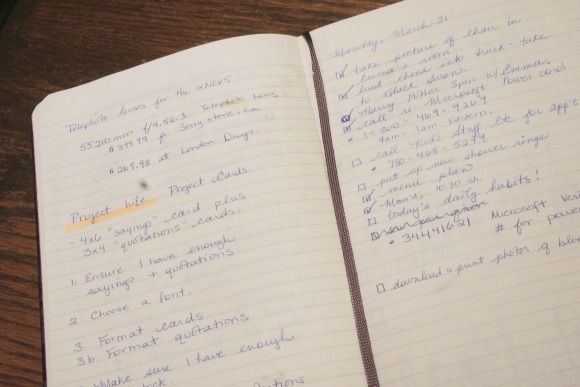 Telephoto lenses for the NEX5
55210mm f/4.5 6.3 Telephoto Lens.
$399.99 fr Sony store.ca
$269.98 at London Drugs.
Project Life Project Cards.
- 4x6 "sayings" card plus
3x4 "quotations" cards.
1. Ensure I have enough
sayings + quotations
2. Choose a font.
3. Format cards.
3b. Format quotations
Make sure I have enough
Monday, March 21
take picture of chair in
Emma's room
load china into truck - take
to Black Swan.
3pm w/ Emma.
call re Microsoft Power cord.
• 1-800-
9am - 1am Eastern.
call Kids Stuff etc for app't
• 780-468-
put up new shower rings
menu plan
Mom's, 10:30
today's daily habits!
• Microsoft
# for power
download + print photos of